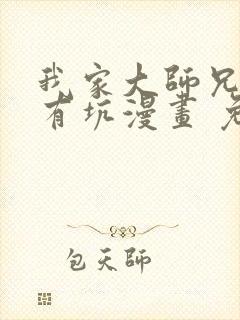 我家大師兄
有坑漫畫
包天師